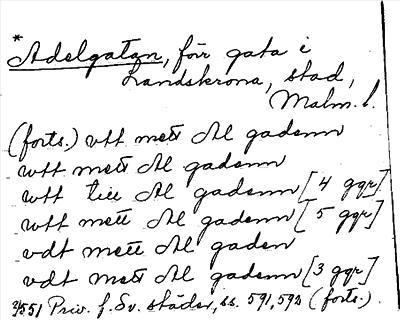 * Adelgatan, förr gata i
Landskrona, stad,
Malm. l.
(forts.) vtt mett Al gadenn
wtt mett Al gadenn
wtt till Al gadenn [4 ggr]
wtt mett Al gadenn [5 ggr]
vdt mett Al gaden
vdt mett Al gadenn [3 ggr]
2/551 Priv. f. Sv. städer, ss. 591, 592 (forts.).